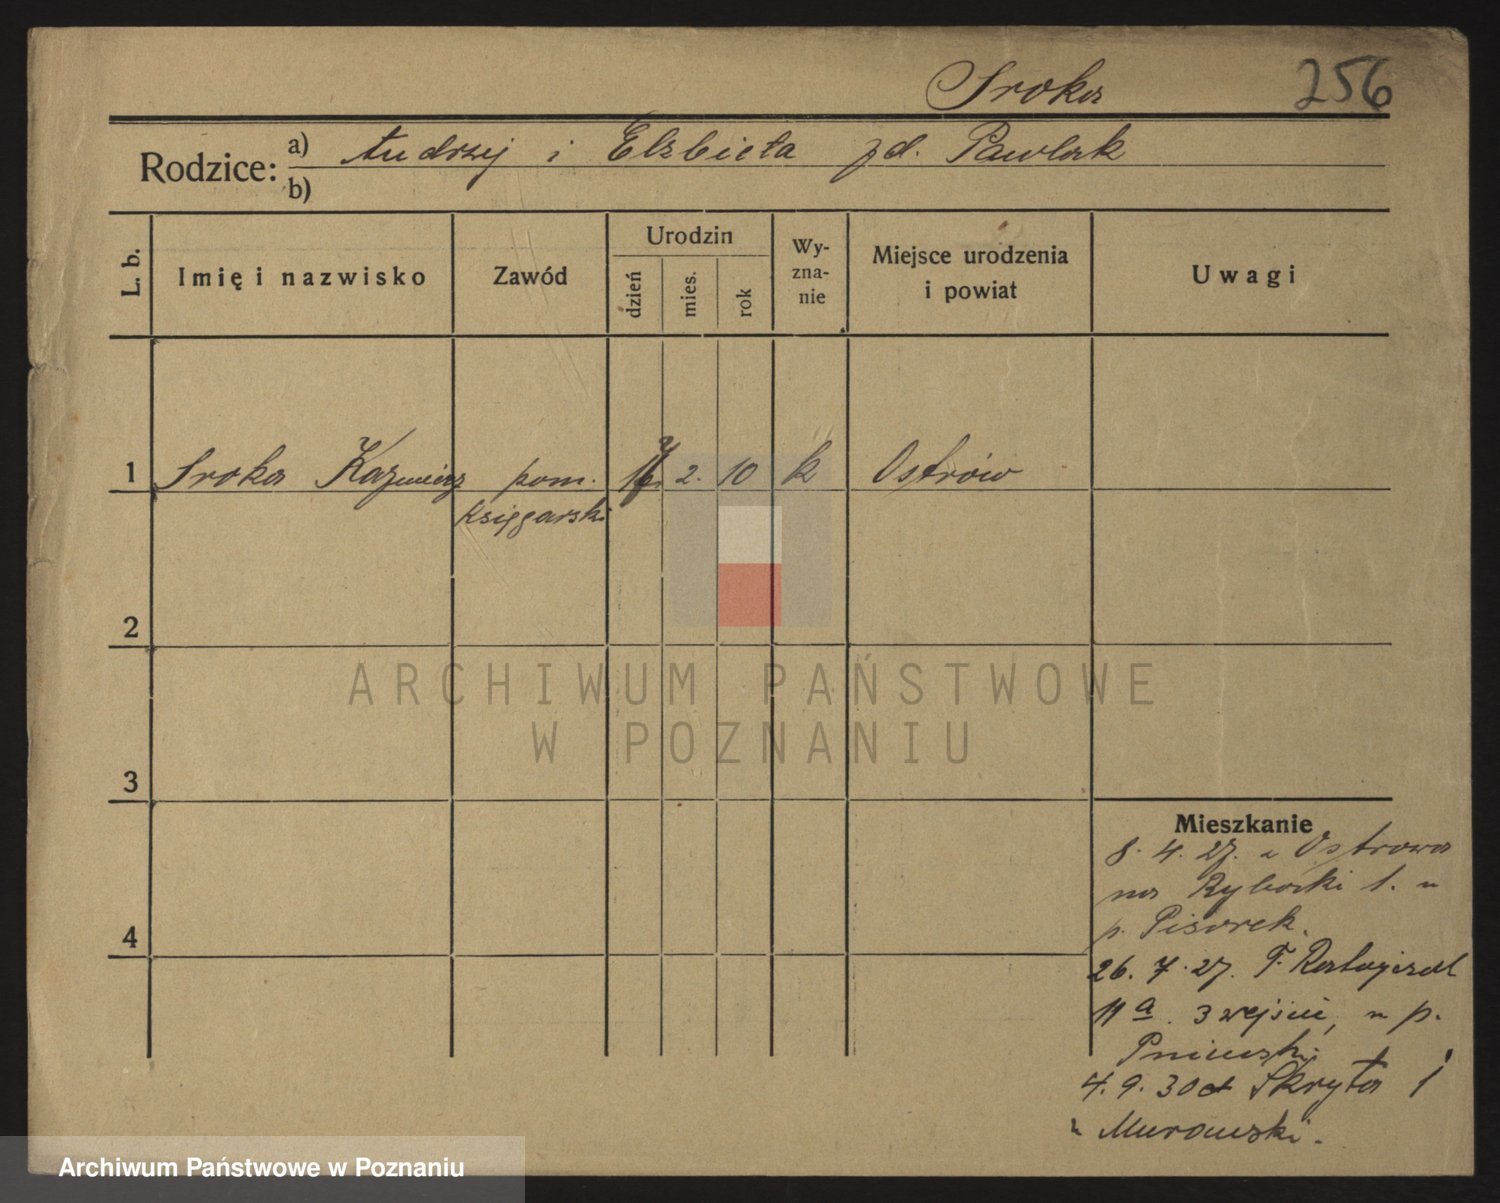 Sroka 256
Rodzice: a) Andrzej i Elżbieta zd. Pawlak
b)
L. b. Imię i nazwisko Zawód Urodzin dzień mies. rok Wy-zna-nie Miejsce urodzenia i powiat Uwagi
1 Sroka Kazimierz pom. 2. 10 k Ostrów
księgarski
2
ARCHIWUM PAŃSTWOWE
W POZNANIU
3
Mieszkanie
8. 4. 27. z Ostrowa
na Rybaki 1. u
p. Pisarek.
4
26. 7. 27. F. Ratajczak
11 a. 3 wejście, u p.
4. 9. 30 Skryta 1
u Murawski.
Archiwum Państwowe w Poznaniu